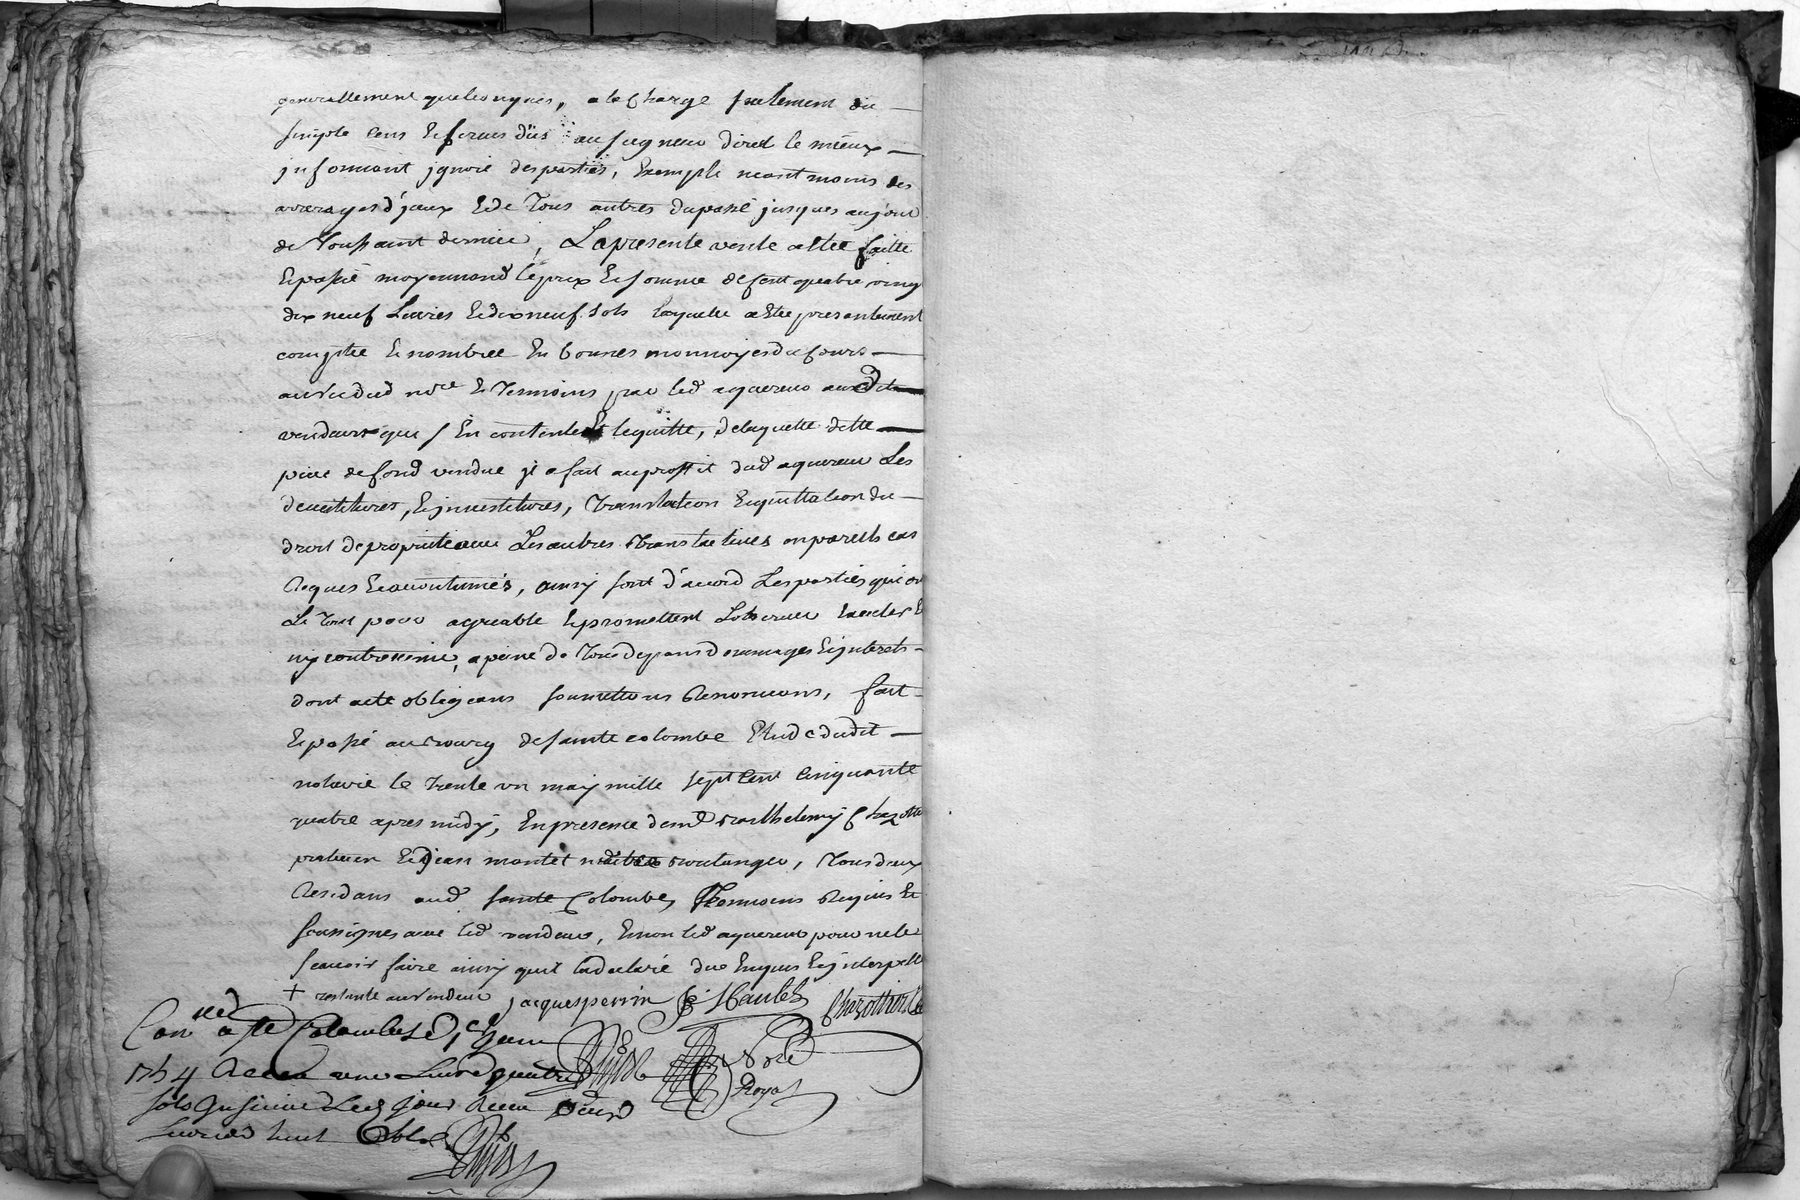 generallement quelconques, a la Charge seulement du
simple Cens & servis düs au seigneur direct le mieux
jnformant jgnoré des parties, Exempte neantmoins des
arrerages d'jceux & de Tous autres du passé jusques au jour
de Toussaint dernier, La presente vente a Eté faitte
& passé moyennand le prix & somme de Cent quatre ving
dix neuf Livres & dix neuf sols laquelle a Eté presantement
comptée & nombrée En bonnes monnoyes de Cours
au vû dud nore & Temoins par led aquereur audit
vendeur qui s'En contente & le quitte, de laquelle ditte
piece de fond vendue jl a fait au proffit dud aquereur Les
devetitures, & jnvestitures, Translation & quittation du
droit de propriété avec Les autres Translatives en pareils cas
Requis & acoutumés, ainsy sont d'acord Les parties qui on
Le Tout pour agreable & promettent L'observer
ny contrevenir, a peine de Tous depans dommages & jnterets
dont acte obligeans soumettans Renonceans, fait
& passé au Bourg de sainte colombe Etude dudit
notaire le Trente un may mille sept Cent Cinquante
quatre apres midy, En presence de me Barthelemy Chazotti
praticien & jean montet boulanger, Tous deux
Residans aud sainte Colombe, Temoins Requis &
soussignes avec led vendeur, & non led aquereur pour ne le
scavoir faire ainsy quil l'a declaré de ce Enquis & jnterpellé
+ restante au vendeur jacques perrin Chazottier
Conllé a Ste Colombe Le
1754 Receu une Livre quatre
sols Insinué Led jour Receu
Livres huit sols
nore
Royal